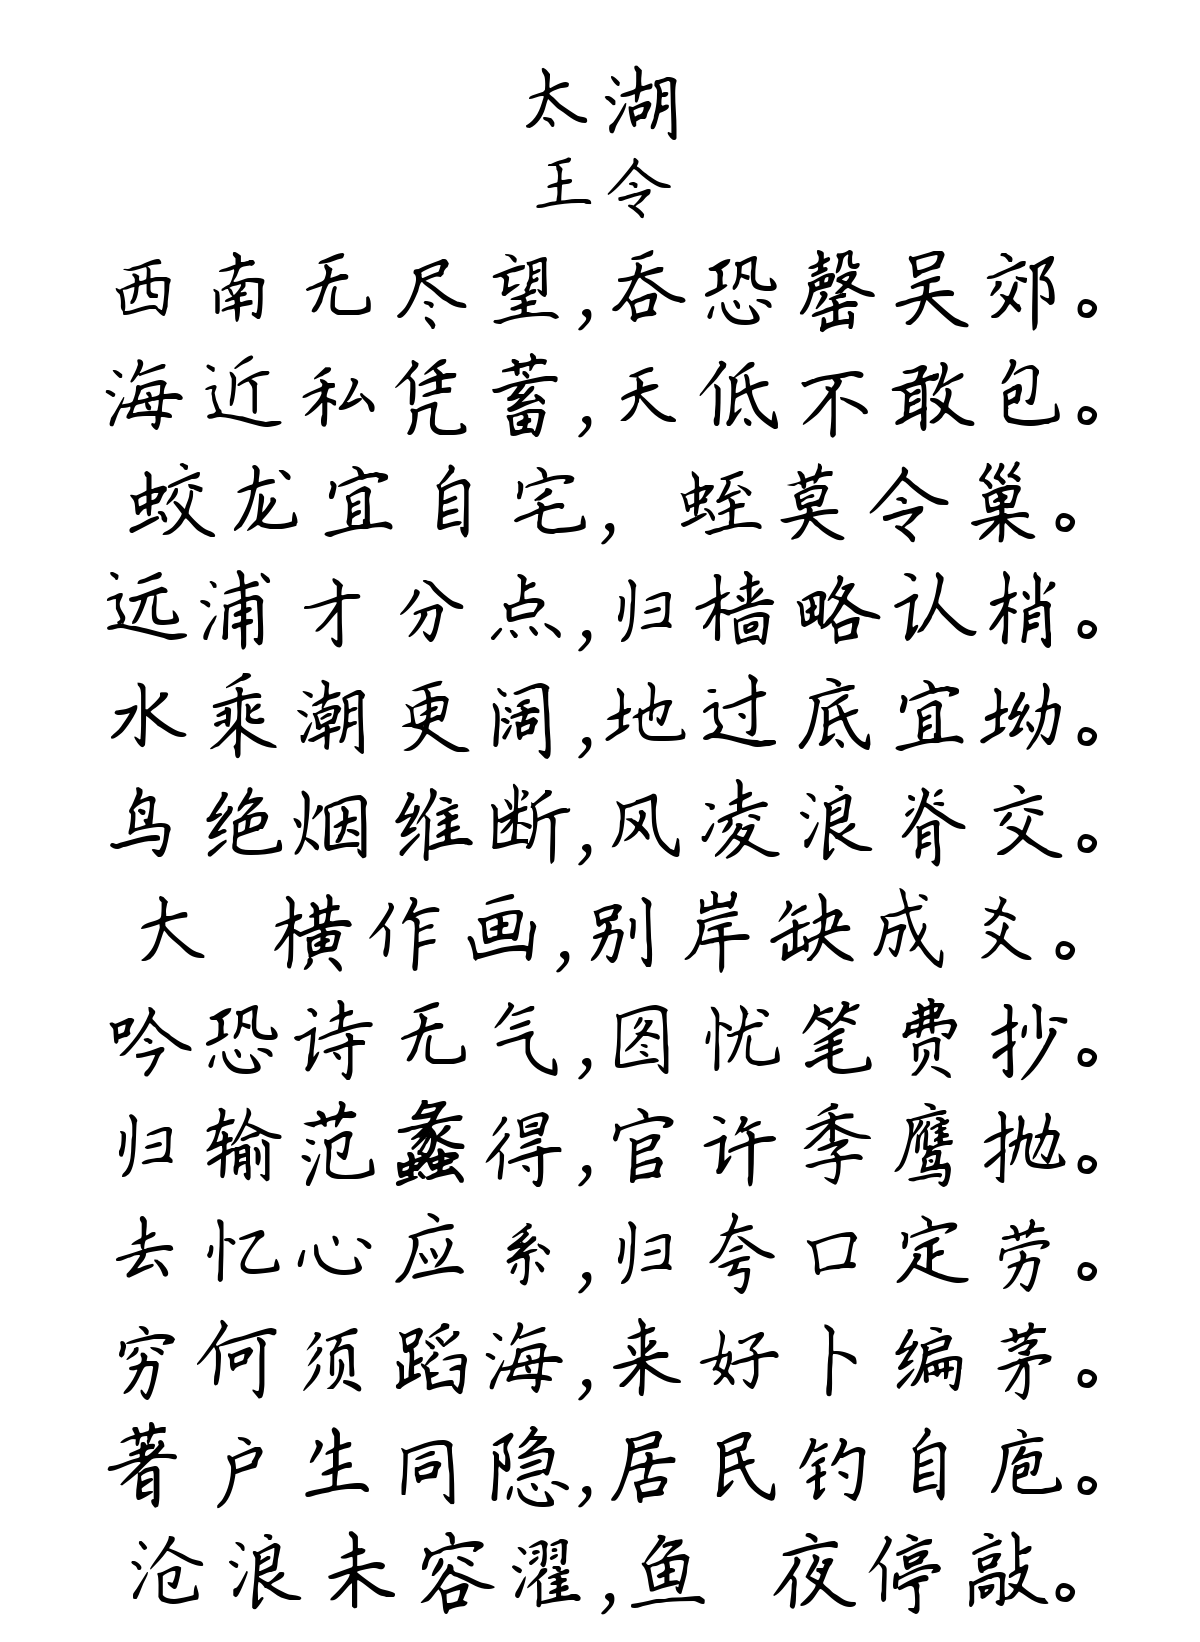 太湖
王令
西南无尽望,吞恐罄吴郊。
海近私凭蓄,天低不敢包。
蛟龙宜自宅,蛭莫令巢。
远浦才分点,归樯略认梢。
水乘潮更阔,地过底宜坳。
鸟绝烟维断,风凌浪脊交。
大 横作画,别岸缺成爻。
吟恐诗无气,图忧笔费抄。
归输范蠡得,官许季鹰抛。
去忆心应系,归夸口定劳。
穷何须蹈海,来好卜编茅。
著户生同隐,居民钓自庖。
沧浪未容濯,鱼 夜停敲。